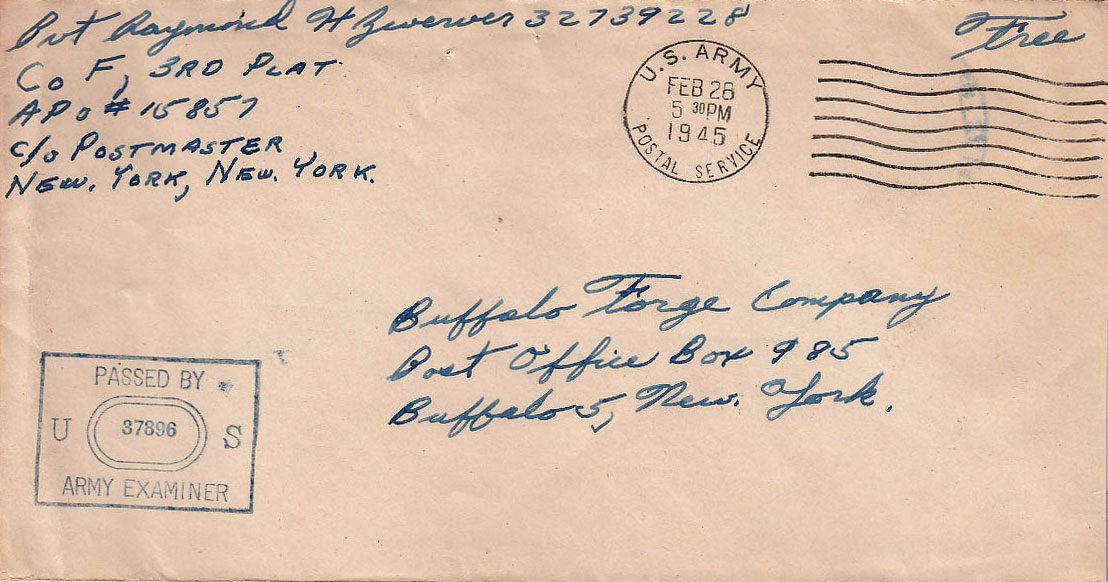 Pvt Raymond H Zwerver 32739228
Co F, 3RD PLAT
APO # 15857
c/o POSTMASTER
NEW. YORK, NEW. YORK.
Free
U.S. ARMY
FEB 28
5 30PM
1945
POSTAL SERVICE
Buffalo Forge Company
Post Office Box 985
Buffalo 5, New. York.
PASSED BY
U 37896 S
ARMY EXAMINER